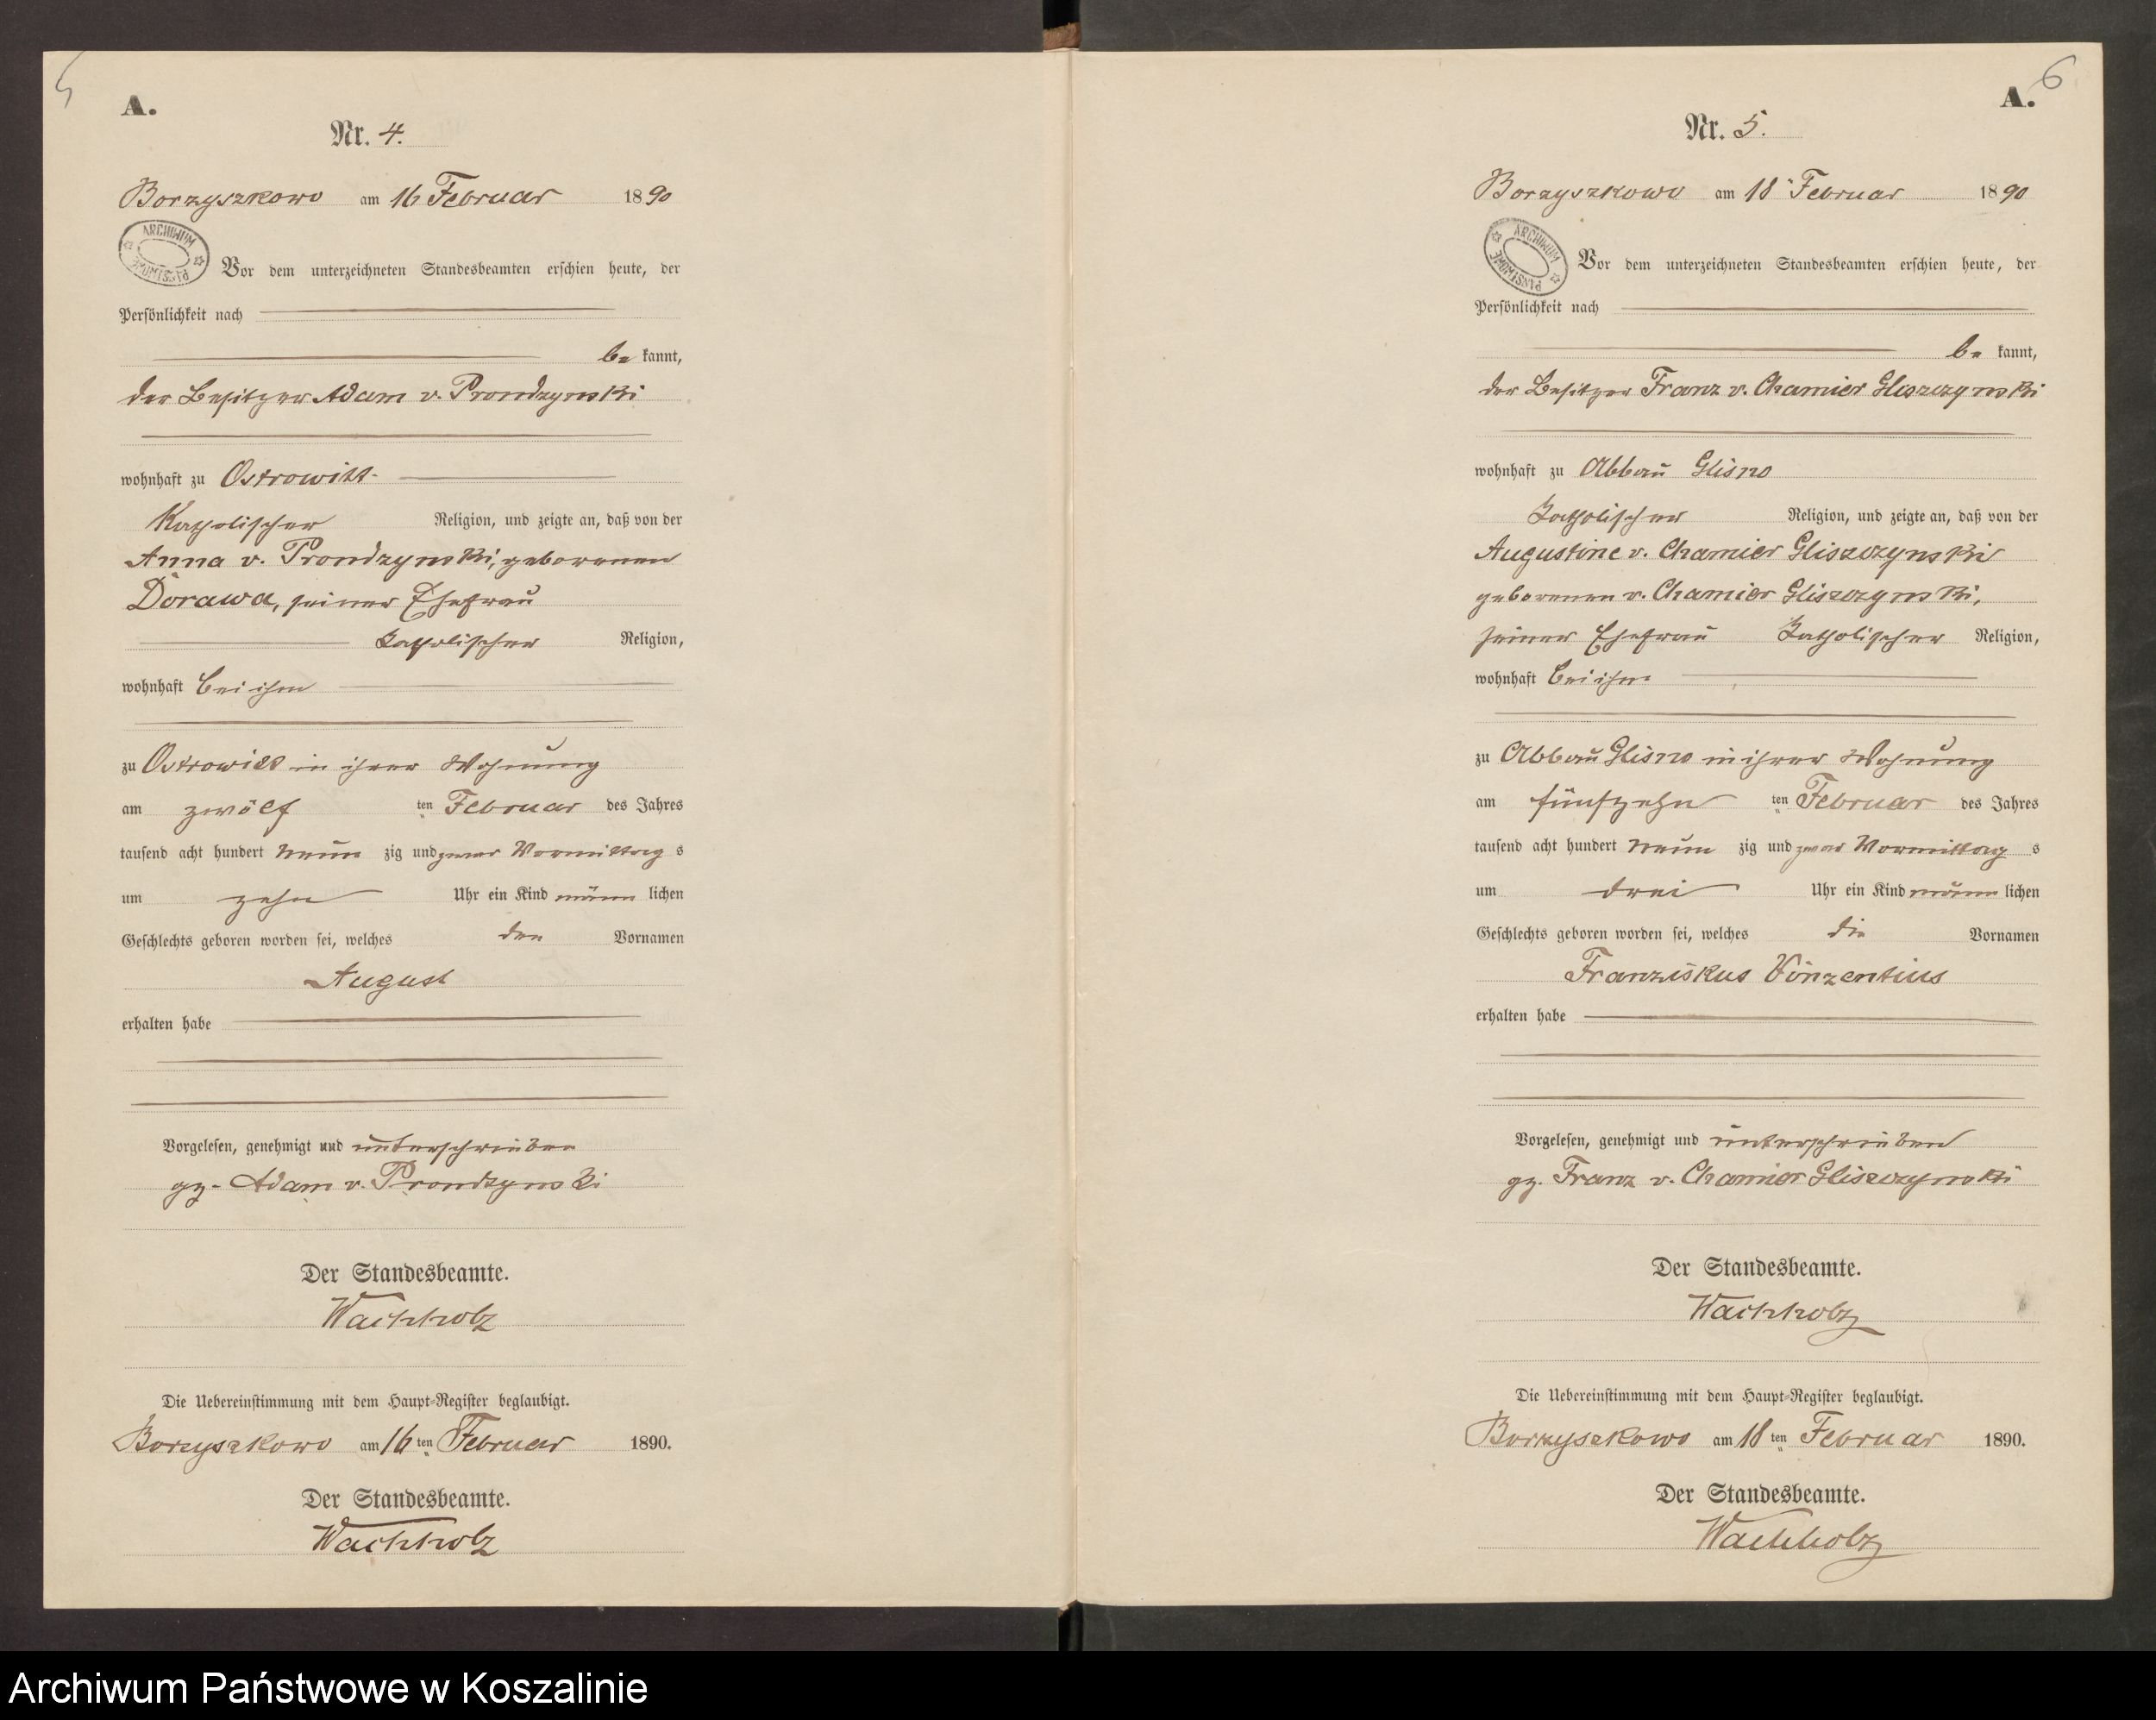 5
A.
Nr. 4.
Borzyszkowo am 16 Februar 1890
ARCHIWUM PAŃSTWOWE
Vor dem unterzeichneten Standesbeamten erschien heute, der
Persönlichkeit nach
be kannt,
der Besitzer Adam v. Prondzynski
wohnhaft zu Ostrowitt
Katholischer Religion, und zeigte an, daß von der
Anna v. Prondzynski, geborenen
Dorawa, seiner Ehefrau
Katholischer Religion,
wohnhaft bei ihm
zu Ostrowitt in ihrer Wohnung
am zwölf ten Februar des Jahres
tausend acht hundert neun zig und zwar Vormittag s
um zehn Uhr ein Kind männ lichen
Geschlechts geboren worden sei, welches den Vornamen
August
erhalten habe
Vorgelesen, genehmigt und unterschrieben
gz. Adam v. Prondzynski
Der Standesbeamte.
Wachholz
Die Uebereinstimmung mit dem Haupt-Register beglaubigt.
Borzyszkowo am 16 ten Februar 1890.
Der Standesbeamte.
Wachholz
6
A.
Nr. 5.
Borzyszkowo am 18 Februar 1890
ARCHIWUM PAŃSTWOWE
Vor dem unterzeichneten Standesbeamten erschien heute, der
Persönlichkeit nach
be kannt,
der Besitzer Franz v. Chamier Gliszczynski
wohnhaft zu Abbau Glisno
Katholischer Religion, und zeigte an, daß von der
Augustine v. Chamier Gliszczynski
geborenen v. Chamier Gliszczynski,
seiner Ehefrau Katholischer Religion,
wohnhaft bei ihm
zu Abbau Glisno in ihrer Wohnung
am fünfzehn ten Februar des Jahres
tausend acht hundert neun zig und zwar Vormittag s
um drei Uhr ein Kind männ lichen
Geschlechts geboren worden sei, welches die Vornamen
Franziskus Vinzentius
erhalten habe
Vorgelesen, genehmigt und unterschrieben
gz. Franz v. Chamier Gliszczynski
Der Standesbeamte.
Wachholz
Die Uebereinstimmung mit dem Haupt-Register beglaubigt.
Borzyszkowo am 18 ten Februar 1890.
Der Standesbeamte.
Wachholz
Archiwum Państwowe w Koszalinie